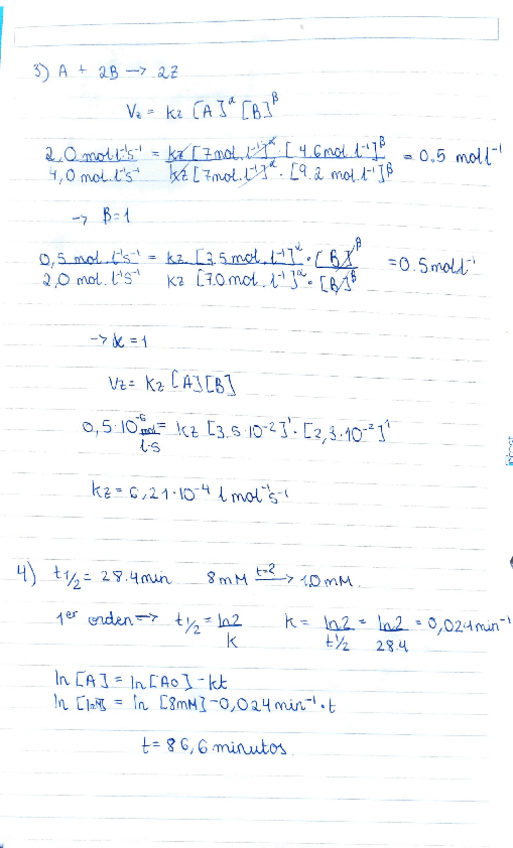 3) A + 2B → 2Z
Vz = kz [A]^α [B]^β
2,0 mol l⁻¹s⁻¹ / 4,0 mol. l⁻¹s⁻¹ = kz [7mol. l⁻¹]^α · [4.6mol l⁻¹]^β / kz [7mol. l⁻¹]^α · [9.2 mol. l⁻¹]^β = 0.5 mol l⁻¹
→ β=1
0,5 mol. l⁻¹s⁻¹ / 2,0 mol. l⁻¹s⁻¹ = kz [3.5mol. l⁻¹]^α · [B]^β / kz [7.0mol. l⁻¹]^α · [B]^β = 0.5mol l⁻¹
→ α = 1
Vz = Kz [A][B]
0,5·10⁻⁶ mol / l·s = kz [3.5·10⁻²]¹ · [2,3·10⁻²]¹
kz = 6,21·10⁻⁴ l mol⁻¹s⁻¹
4) t1/2 = 28.4min 8mM t=? → 1.0mM.
1er orden → t1/2 = ln2 / k k = ln2 / t1/2 = ln2 / 28.4 = 0,024min⁻¹
ln [A] = ln [A0] - kt
ln [1mM] = ln [8mM] - 0,024min⁻¹ · t
t = 86,6 minutos.